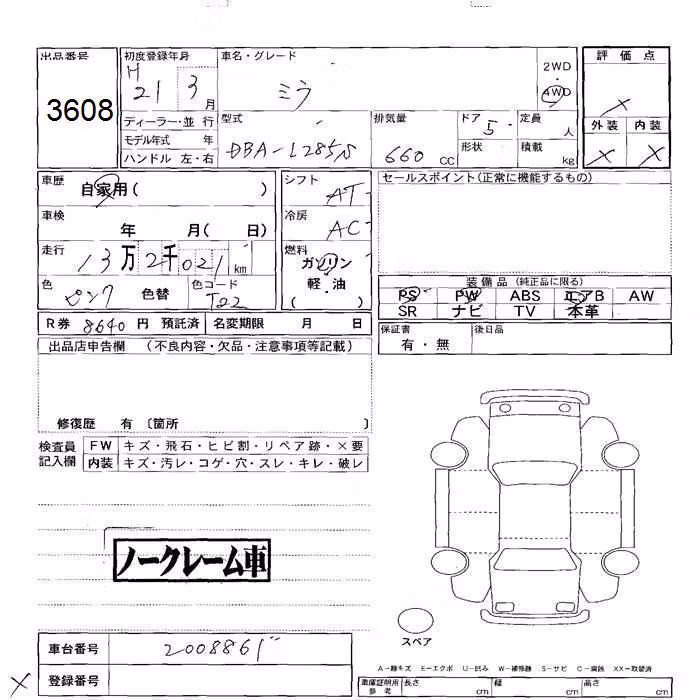 出品番号
3608
初度登録年月
H 21 3 月
ディーラー・並 行
モデル年式 年
ハンドル 左・右
車名・グレード
ミラ
2WD
・
4WD
型式
DBA-L285
排気量
660 CC
ドア 5
形状
定員 人
積載 kg
評 価 点
×
外 装 内 装
× ×
車歴
自家用( )
車検
年 月( 日)
走行
13万2千021km
色
ピンク 色替
色コード
T22
シフト
AT
冷房
AC
燃料
ガソリン
軽・油
( )
セールスポイント(正常に機能するもの)
装 備 品 (純正品に限る)
PS PW ABS エアB AW
SR ナビ TV 本革
R券 8640 円 預託済 名変期限 月 日
保証書
有・無
後日品
出品店申告欄 (不良内容・欠品・注意事項等記載)
修復歴 有 〔箇所
検査員
記入欄
FW キズ・飛石・ヒビ割・リペア跡・×要
内装 キズ・汚レ・コゲ・穴・スレ・キレ・破レ
ノークレーム車
スペア
車台番号 2008861
× 登録番号
A－線キズ E－エクボ U－凹み W－補修跡 S－サビ C－腐蝕 XX－取替済
車庫証明用
参考
長さ cm 幅 cm 高さ cm